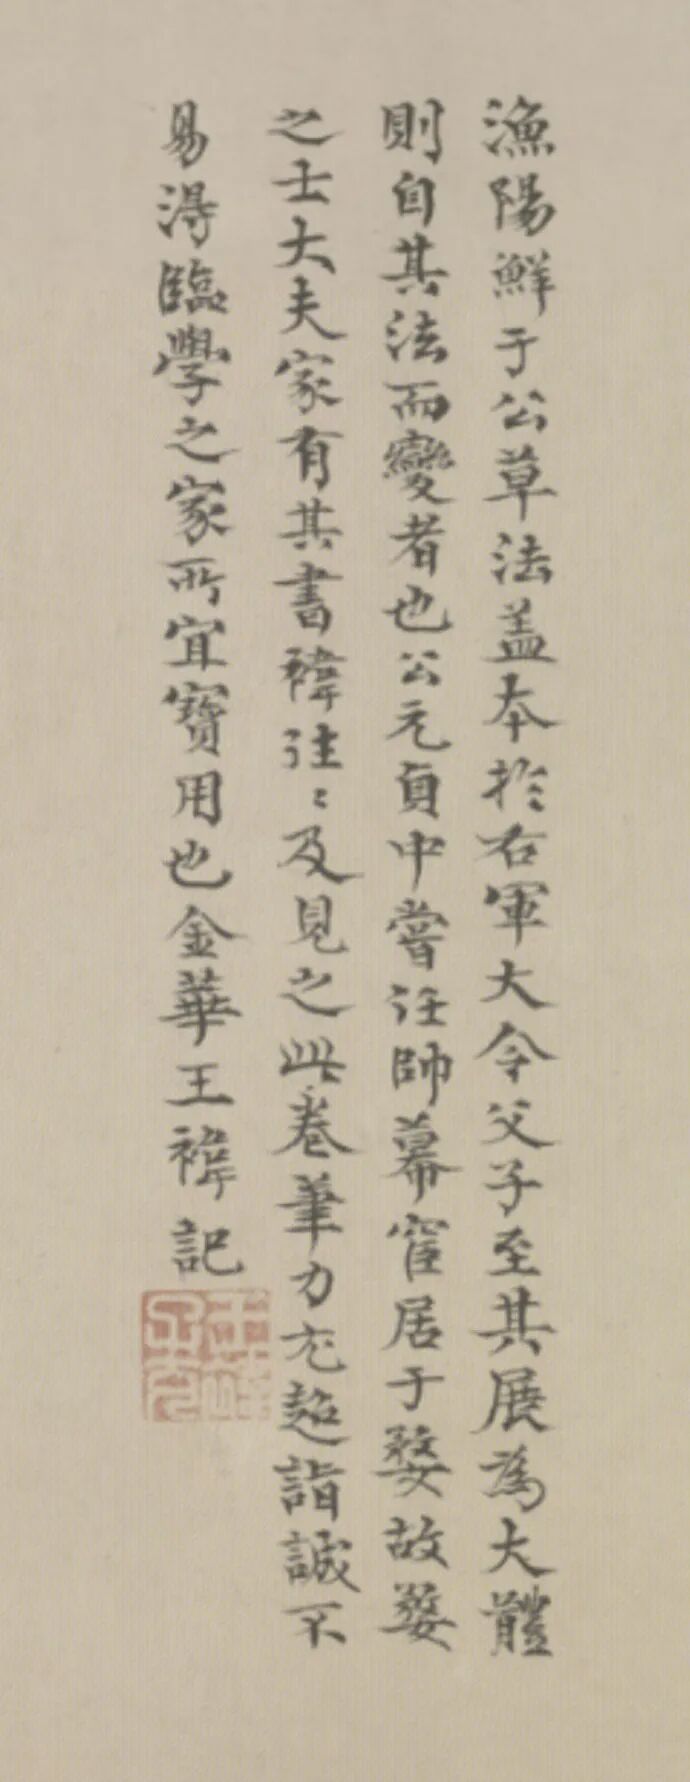 漁陽鮮于公草法盖本於右軍大令父子至其展為大體
則自其法而變者也公元貞中嘗任帥幕宦居于婺故婺
之士大夫家有其書褘往〻及見之此卷筆力尤超詣誠不
易得臨學之家所宜寳用也金華王褘記